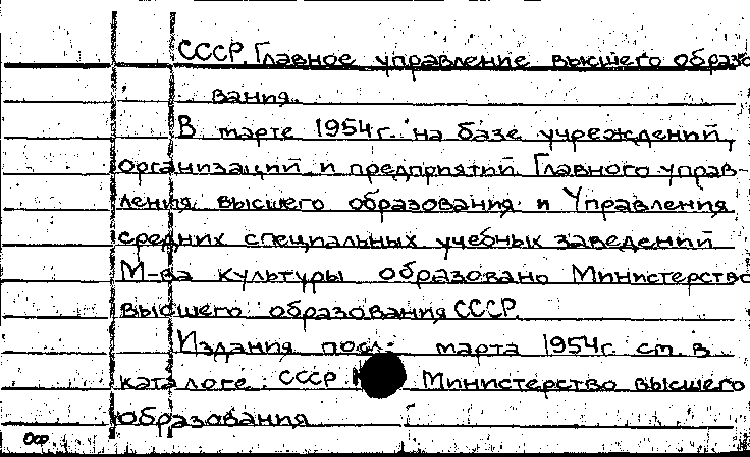 СССР. Главное управление высшего образо
вания.
В марте 1954 г. на базе учреждений,
организаций и предприятий Главного управ-
ления высшего образования и Управления
средних специальных учебных заведений
М-ва культуры образовано Министерство
высшего образования СССР.
Издания посл. марта 1954 г. см. в
каталоге: СССР Министерство высшего
образования